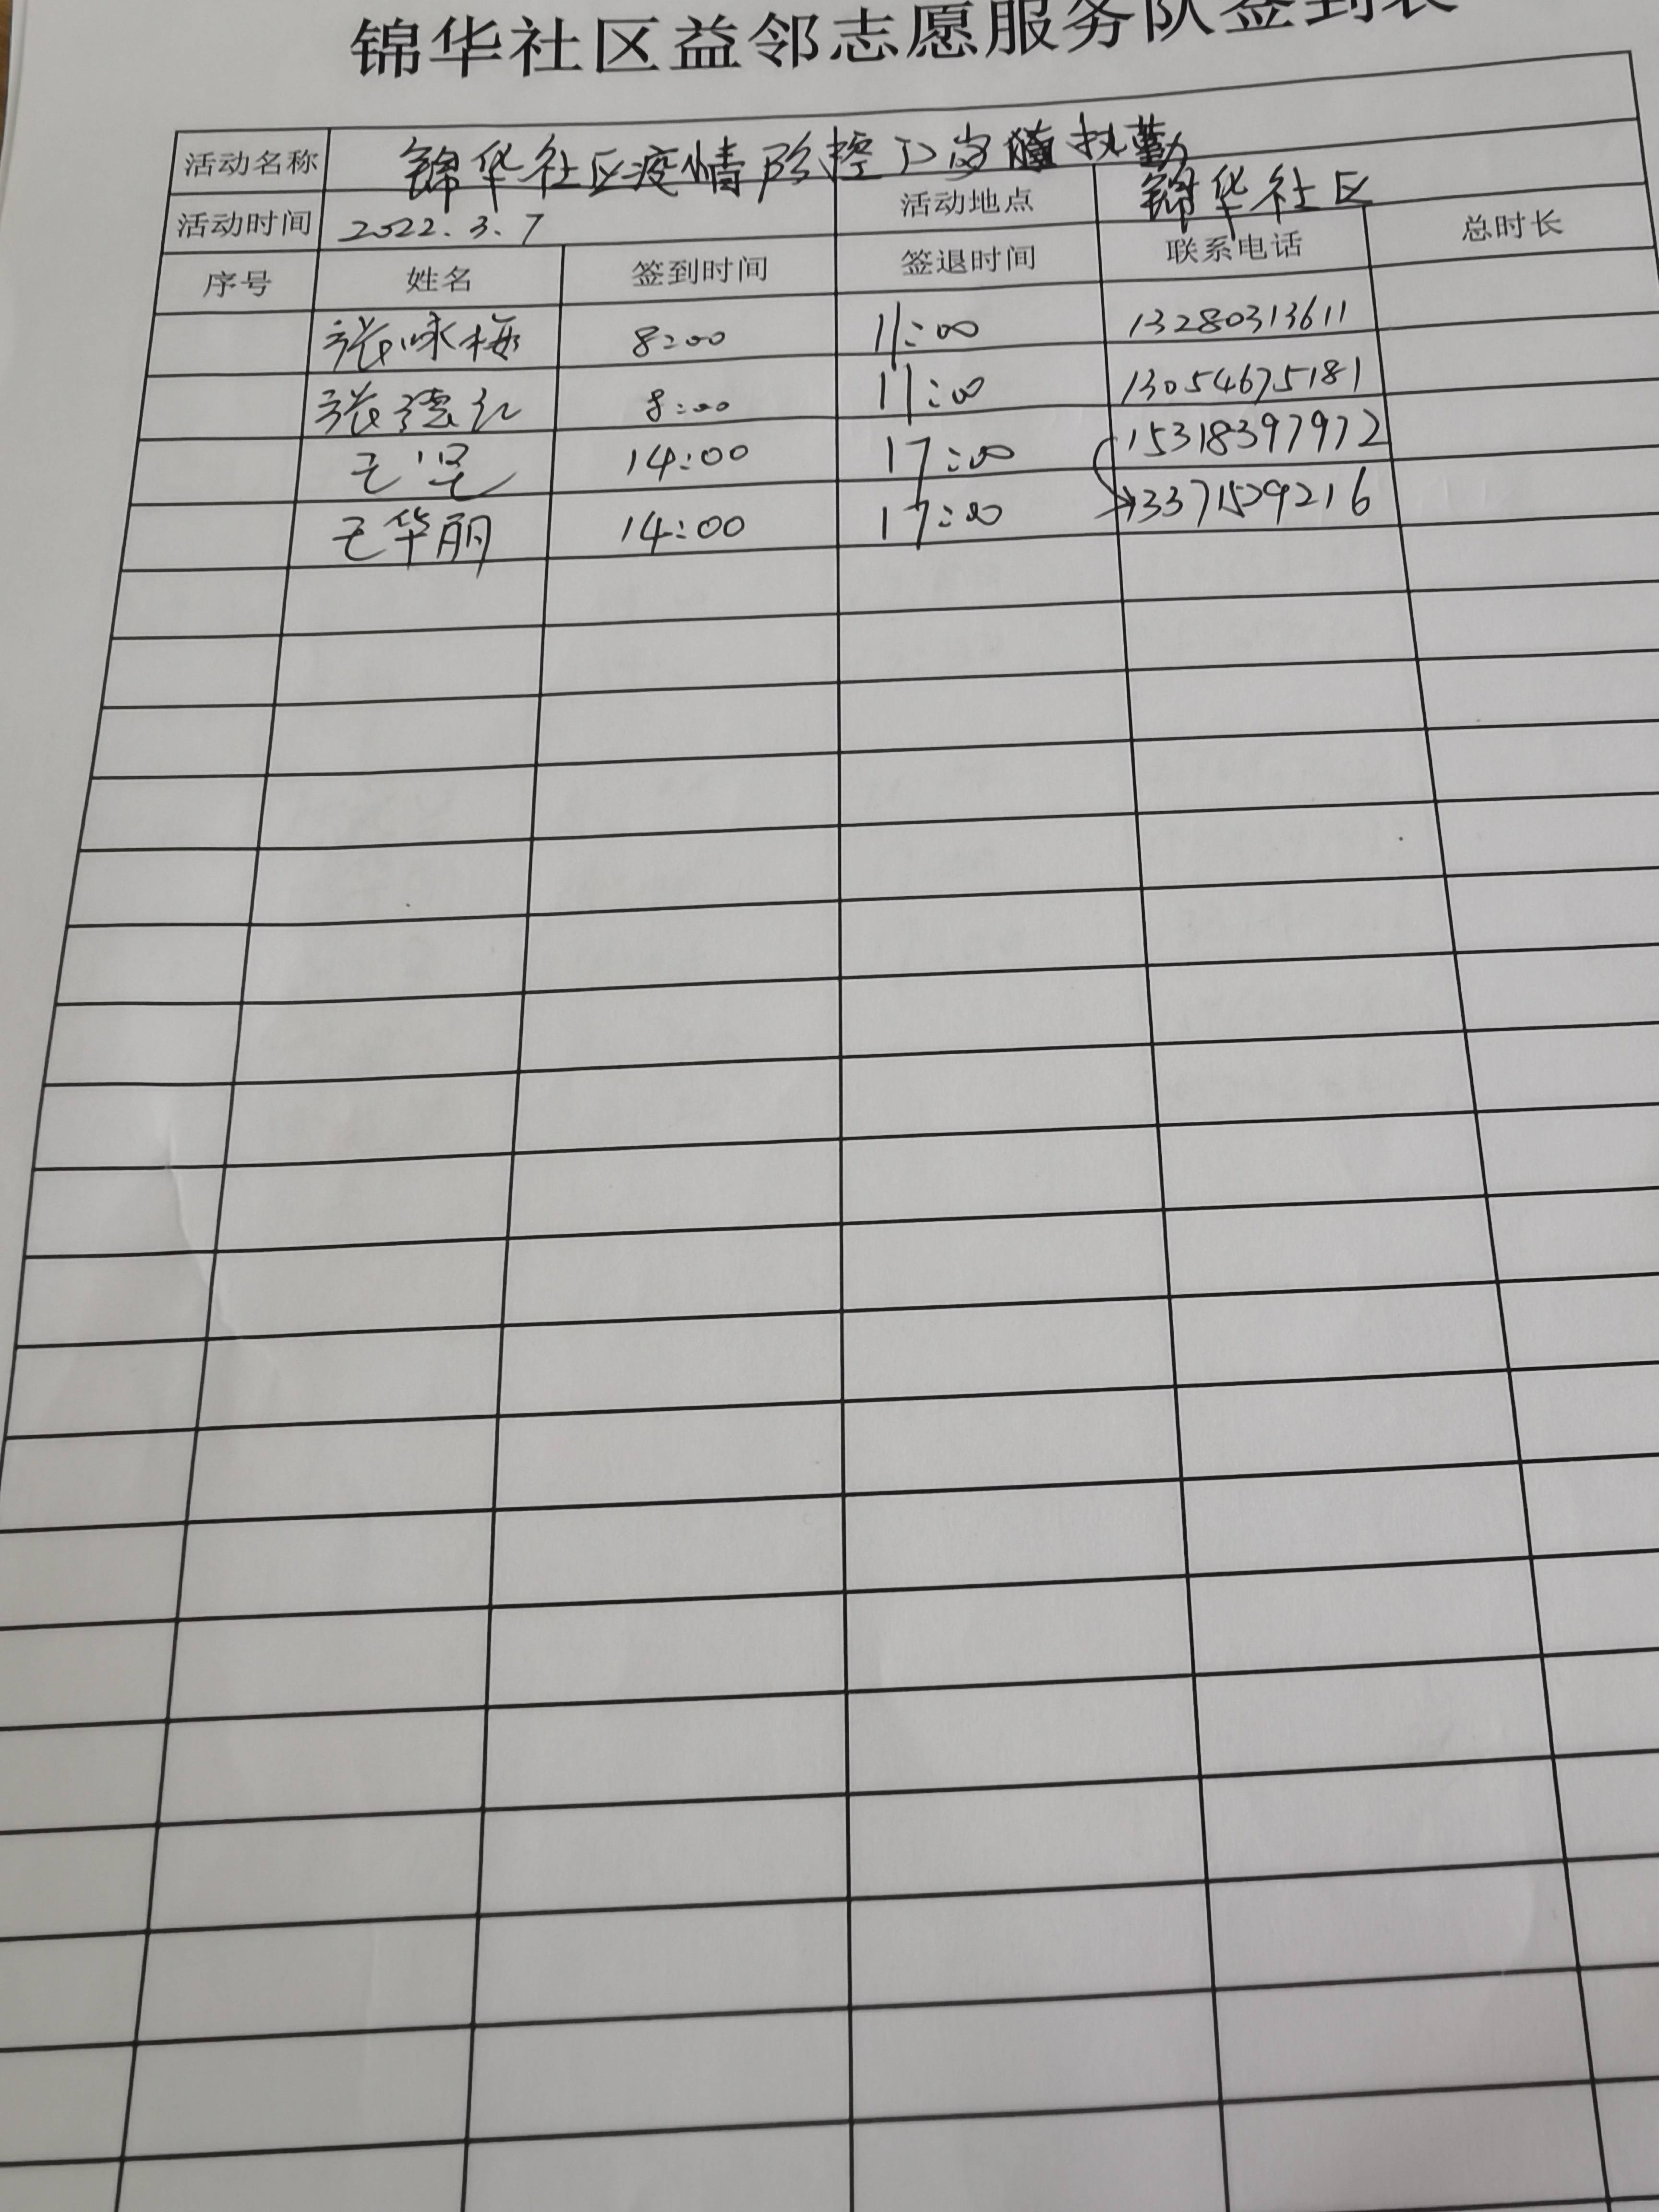 锦华社区益邻志愿服务队签到表
活动名称 锦华社区疫情防控门岗值执勤
活动时间 2022.3.7 活动地点 锦华社区
序号 姓名 签到时间 签退时间 联系电话 总时长
张咏梅 8:00 11:00 13280313611
张德红 8:00 11:00 13054675181
王 14:00 17:00 15318397972
王华丽 14:00 17:00 13371529216